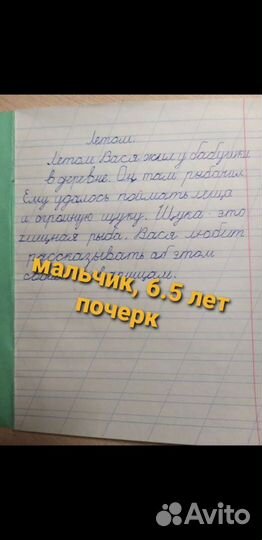 Летом.
Летом Вася жил у бабушки
в деревне. Он там рыбачил.
Ему удалось поймать леща
и огромную щуку. Щука - это
хищная рыба. Вася любит
рассказывать об этом
товарищам.
мальчик, 6.5 лет
почерк
Avito